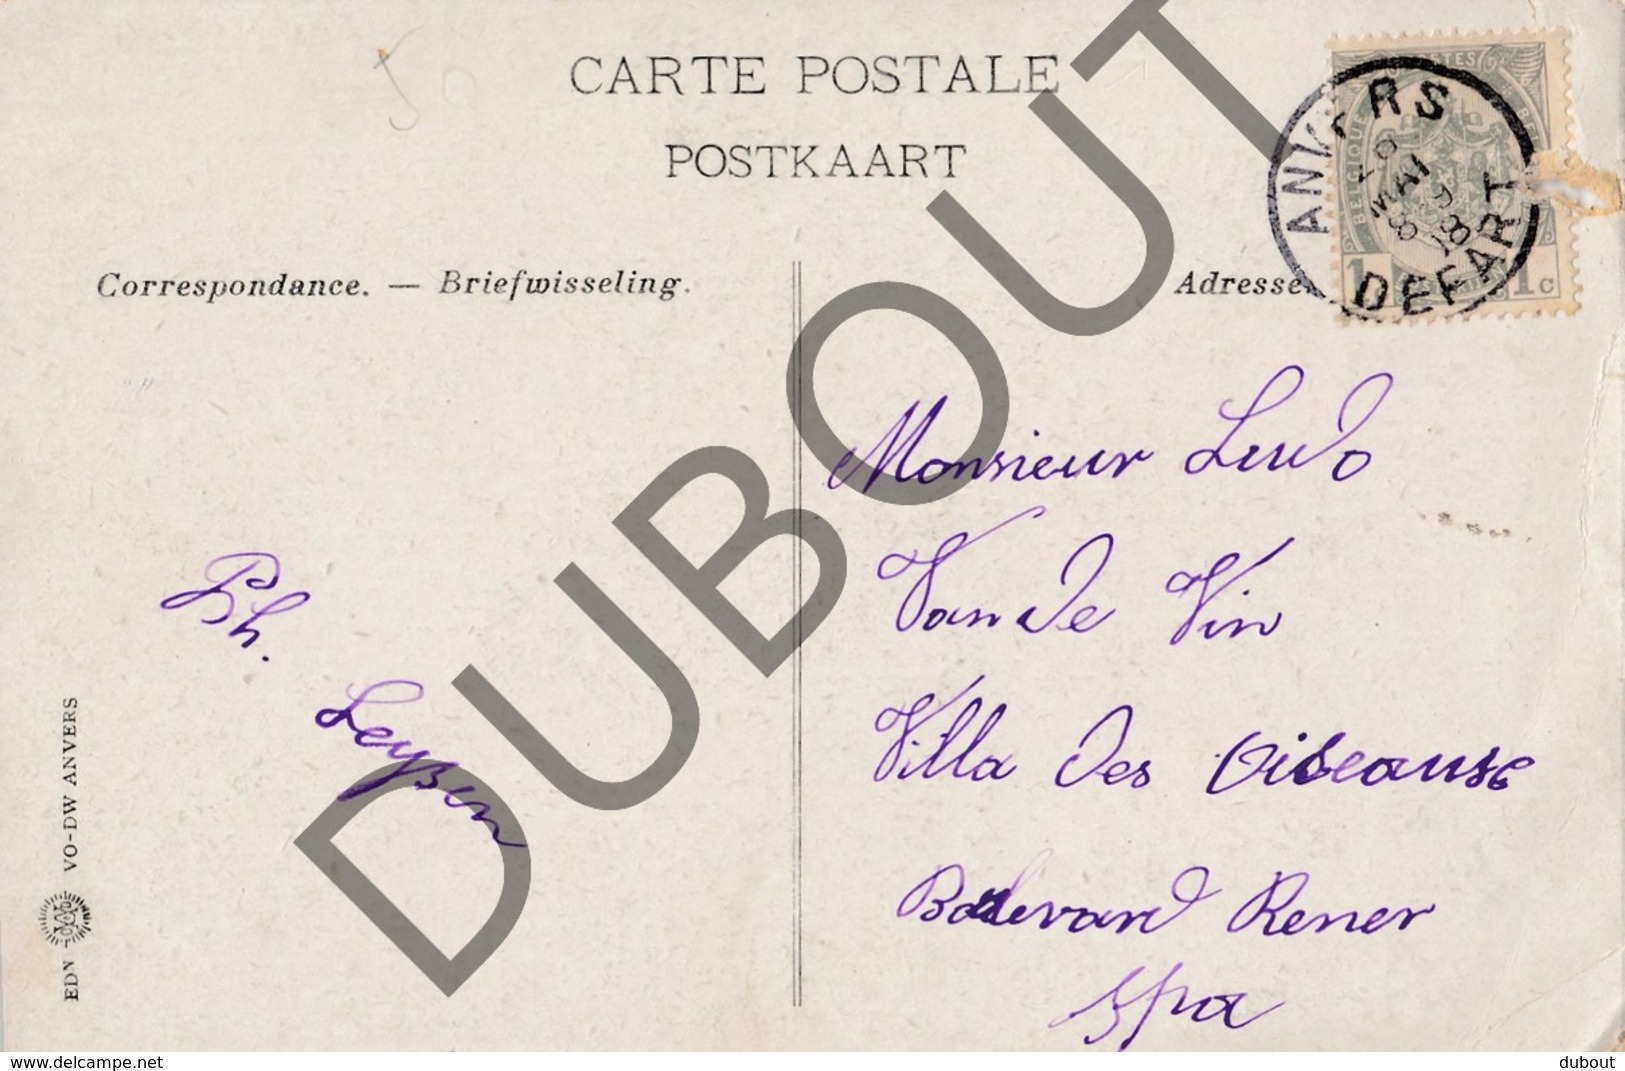 CARTE POSTALE
POSTKAART
Correspondance. — Briefwisseling.
Adresse.
ANVERS
MAI
DEPART
POSTES
BELGIQUE
1 1c
Monsieur Ludo
Van de Vin
Villa des Oiseause
Boulevard Rener
Spa
Ph.
Leysen
EDN VO-DW ANVERS
DUBOUT
www.delcampe.net
dubout